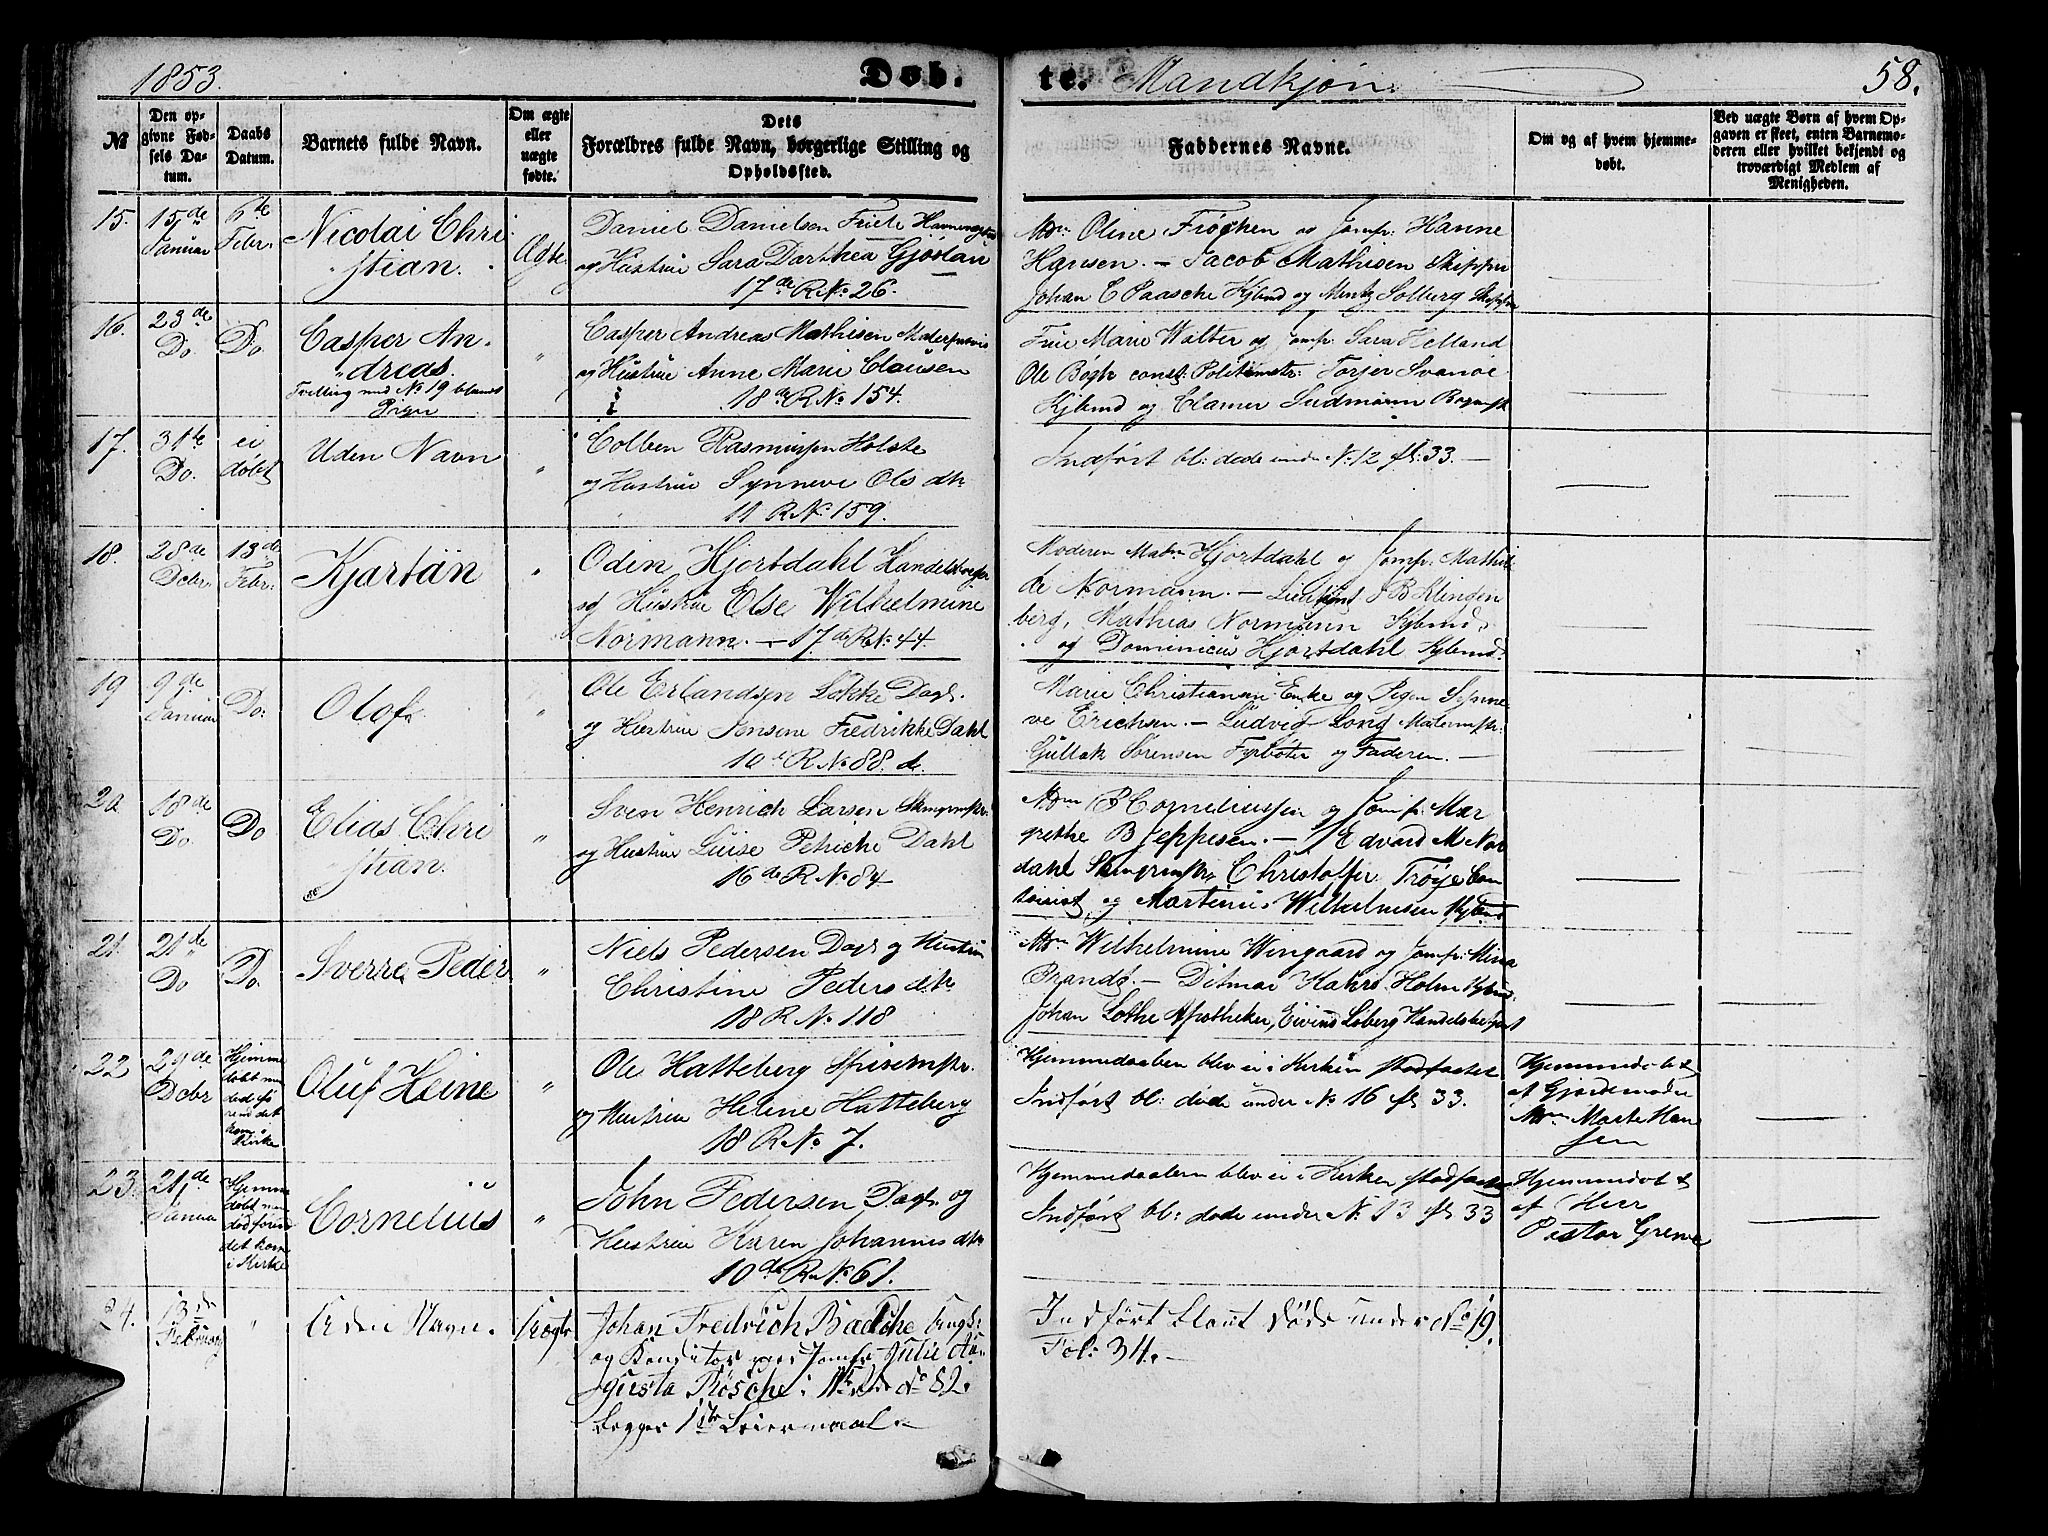 1853.
Døb.
te. Mandkjøn.
58.
№
Den opgivne Fødsels Datum.
Daabs Datum.
Barnets fulde Navn.
Om ægte eller uægte fødte.
Dets Forældres fulde Navn, borgerlige Stilling og Opholdssted.
Faddernes Navne.
Om og af hvem hjemmedøbt.
Ved uægte Børn af hvem Opgaven er skeet, enten Barnemoderen eller hvilket bekjendt og troværdigt Medlem af Menigheden.
15. 15de Januar 6te Febr.
Nicolai Chri
stian.
Ægte.
Daniel Danielsen Friele
og Hustrue Sara Dorthea Gjøstan
17de R № 26.
Mdm Oline Frøchen og Jomfr. Hanne
Hansen. — Jacob Mathisen Skipper
Johan C Paasche Kjbmd og Mentz Solberg
16. 23de Do. Do
Casper An
dreas.
Tvilling med № 19 blandt
Piger
"
Casper Andreas Mathisen
og Hustrue Anne Marie Clausen
18de R № 154.
Frue Marie Walter og Jomfr. Sara Helland
Ole Bøgh const: Politimstr: Torjer Svanøe
Kjbmd og Clamer Sudmann
17. 31te Do. ei døbt
Uden Navn
"
Colben Rasmussen Holste
og Hustrue Synneve Ols dtr
11 R № 159.
Indført bl: døde under № 12 fl: 33. —
18. 28de Dcbr 13de Febr.
Kjartan
"
Odin Hjortdahl Handelsborger
og Hustrue Else Wilhelmine
Normann. — 17de R № 44.
Moderen Mdm Hjortdahl og Jomfr. Mathil
de Normann. — Lieutnt J B Klingen
berg, Mathias Normann Kjbmd,
og Dominicus Hjortdahl Kjbmd.
19 9de Januar Do:
Olof.
"
Ole Erlandsen Løkke Dagk.
og Hustrue Jensine Fredrikke Dahl
10de R № 88. d.
Marie Christiane Enke og Pigen Synne
ve Erichsen. — Ludvig Long Malermstr:
Gullak Sørensen Fyrbøter og Faderen. —
20 18de Do. Do
Elias Chri
stian.
"
Sven Henrich Larsen
og Hustrue Luise Petriche Dahl
16de R № 84
Mdm P Corneliussen og Jomfr. Mar
grethe B Jeppesen. — Edvard M Nor
dahl Christoffer Trøye Con
toirist, og Martinus Wilhelmsen Kjbmd
21. 21de Do Do.
Sverre Peder
"
Niels Pedersen Dagk og Hustrue
Christine Peders dtr
18 R № 118
Mdm Wilhelmine Wingaard og Jomfr. Mina
Brandt. — Ditmar Hahrs Holm Kjbmd.
Johan Lothe Apotheker, Eivind Løberg
22 29de Dcbr
Hjemme
døbt men
død fø
rend det
kom i
Kirke
Oluf Heine
"
Ole Hatteberg
og Hustrue Helene Hatteberg
18 R № 7.
Hjemmedaaben blev ei i Kirken stadfæstet
Indført bl: døde under № 16 fl 33.
Hjemmedøbt
af Gjordemoder
Mdm Marte Han
sen
23. 21de Januar
Hjemme
døbt men
død førend
det kom
i Kirke
Cornelius
"
John Pedersen Dagk. og
Hustrue Karen Johannes dtr
10de R № 61.
Hjemmedaaben blev ei i Kirken stadfæstet
Indført bl: døde under № 13 fl 33
Hjemmedøbt
af Herr
Pastor Greve
24. 13de Februar "
Uden Navn.
Uægte
Johan Fredrich Baetche Ungk:
og Konditor og Jomfr. Julie Au
gusta Røsche i R № 82.
Begges 1ste Leiermaal.
Indført blant døde under № 19.
Fol: 34. —